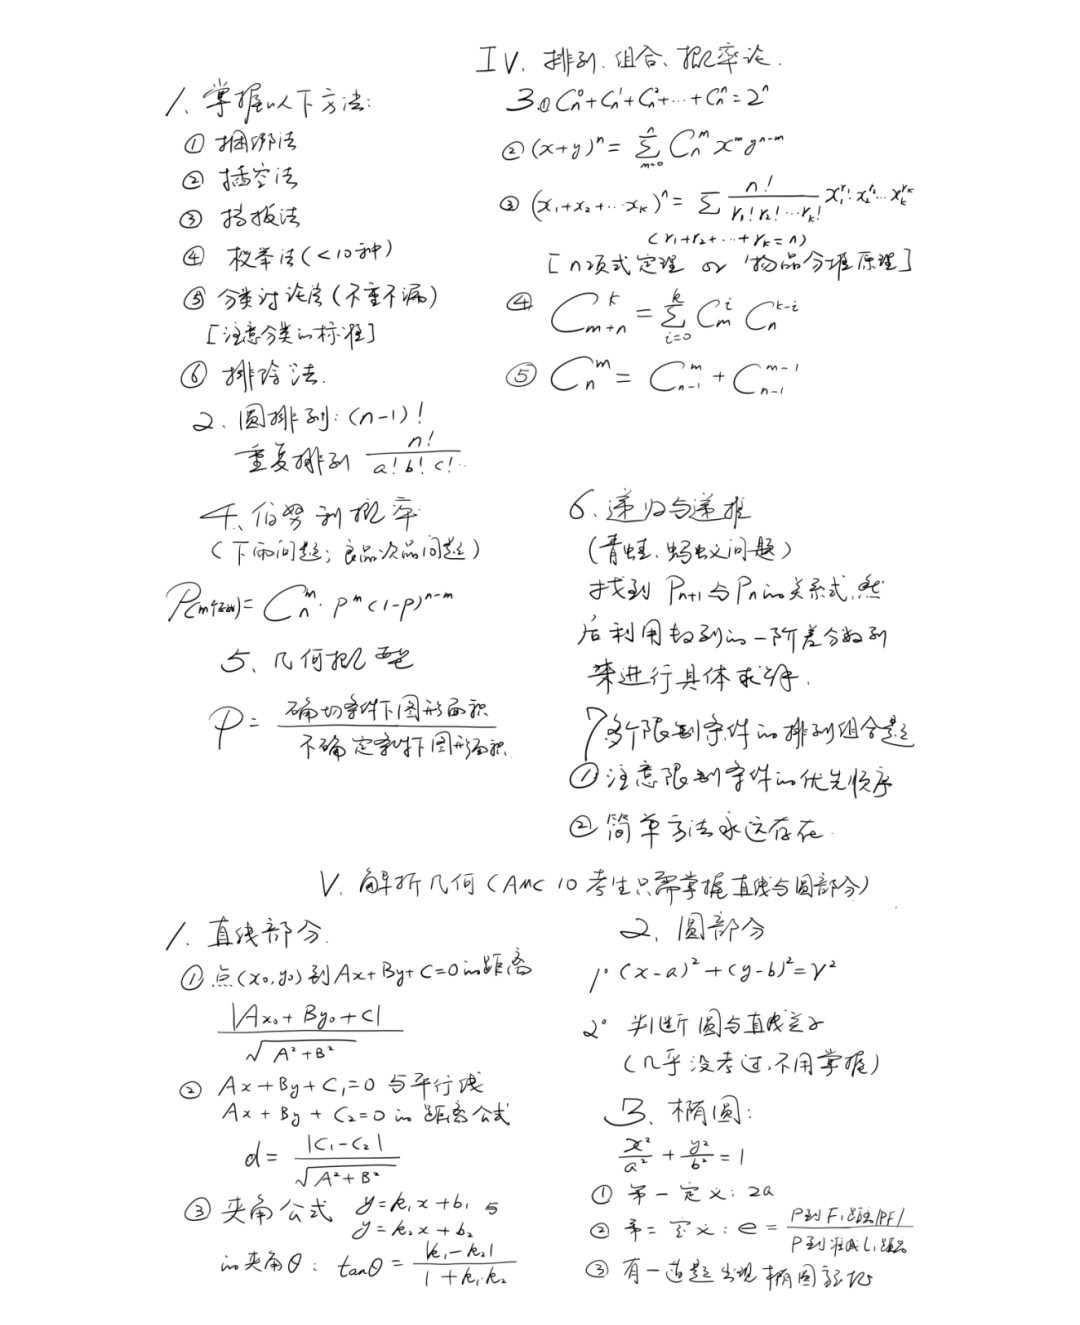 IV. 排列.组合、概率论.
1. 掌握以下方法:
① 捆绑法
② 插空法
③ 挡板法
④ 枚举法(<10种)
⑤ 分类讨论法(不重不漏)
[注意分类的标准]
⑥ 排除法.
2. 圆排列: (n-1)!
重复排列 n!/(a!b!c!..)
3.① Cₙ⁰+Cₙ¹+Cₙ²+…+Cₙⁿ=2ⁿ
② (x+y)ⁿ = Σ_{m=0}^{n} Cₙᵐ xᵐ yⁿ⁻ᵐ
③ (x₁+x₂+…xₖ)ⁿ = Σ n!/(r₁!r₂!…rₖ!) x₁^{r₁}·x₂^{r₂}…xₖ^{rₖ}
(r₁+r₂+…+rₖ=n)
[n项式定理 or 物品分堆原理]
④ C_{m+n}^{k} = Σ_{i=0}^{k} C_{m}^{i} C_{n}^{k-i}
⑤ C_{n}^{m} = C_{n-1}^{m} + C_{n-1}^{m-1}
4、伯努利概率
(下雨问题; 良品次品问题)
= Cₙᵐ· pᵐ(1-p)ⁿ⁻ᵐ
5、几何概型
P = 确切条件下图形面积/不确定条件下图形面积
6、递归与递推
(青蛙、蚂蚁问题)
找到 Pₙ₊₁与Pₙ的关系式,然
后利用数列的一阶差分数列
来进行具体求解.
7 多个限制条件的排列组合题
① 注意限制条件的优先顺序
② 简单方法永远存在.
V. 解析几何(AMC 10 考生只需掌握直线与圆部分)
1. 直线部分.
① 点(x₀,y₀)到Ax+By+C=0的距离
|Ax₀+By₀+C|/√(A²+B²)
② Ax+By+C₁=0 与平行线
Ax+By+C₂=0的 距离公式
d = |C₁-C₂|/√(A²+B²)
③ 夹角公式 y=k₁x+b₁ 与
y=k₂x+b₂
的夹角θ: tanθ = |k₁-k₂|/(1+k₁·k₂)
2、圆部分
1° (x-a)²+(y-b)²=r²
2° 判断圆与直线关系
(几乎没考过,不用掌握)
3、椭圆:
x²/a² + y²/b² = 1
① 第一定义: 2a
② 第二定义: e = P到F₁距离|PF|/P到准线L₁距离
③ 有一道题出现椭圆